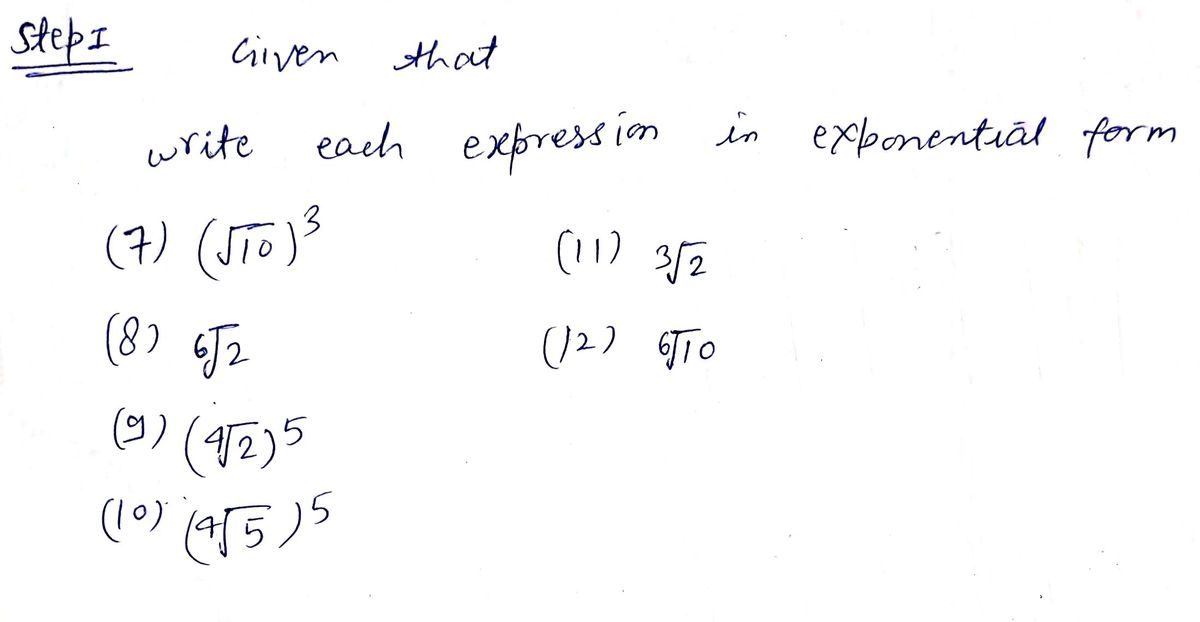 Step I Given that
write each expression in exponential form
(7) (√10)³ (11) ³√2
(8) ⁶√2 (12) ⁶√10
(9) (⁴√2)⁵
(10) (⁴√5)⁵